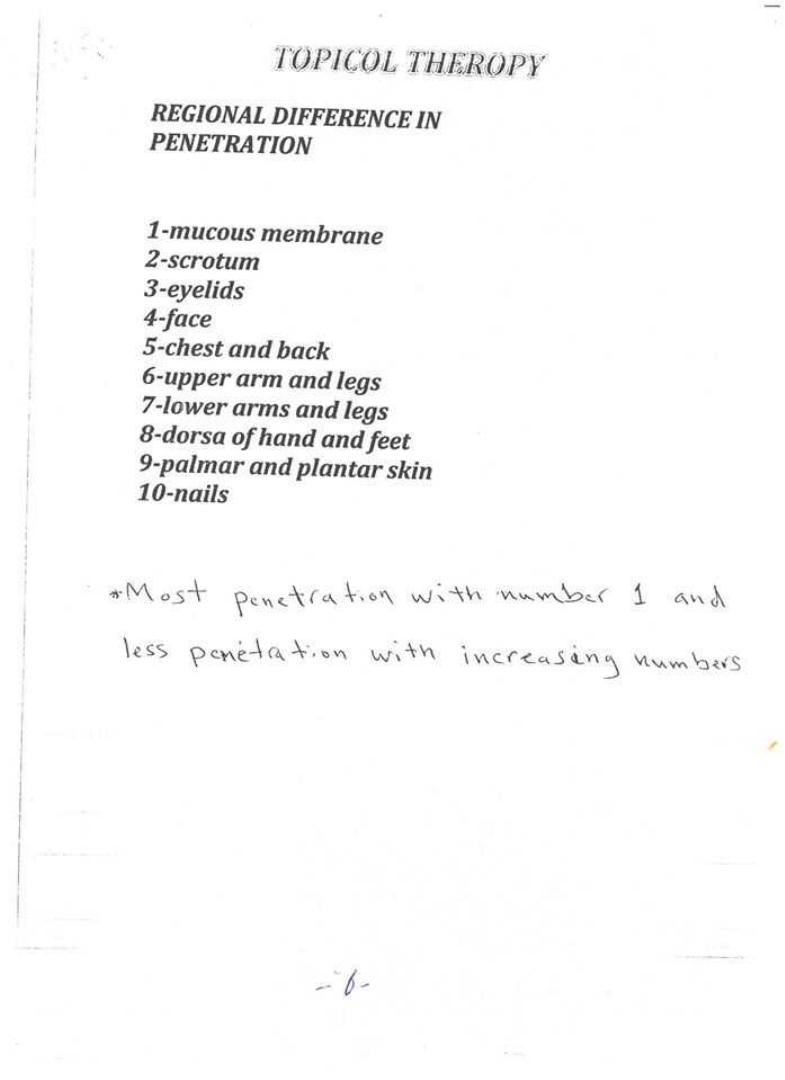 TOPICOL THEROPY
REGIONAL DIFFERENCE IN
PENETRATION
1-mucous membrane
2-scrotum
3-eyelids
4-face
5-chest and back
6-upper arm and legs
7-lower arms and legs
8-dorsa of hand and feet
9-palmar and plantar skin
10-nails
*Most penetration with number 1 and
less penetration with increasing numbers
-6-